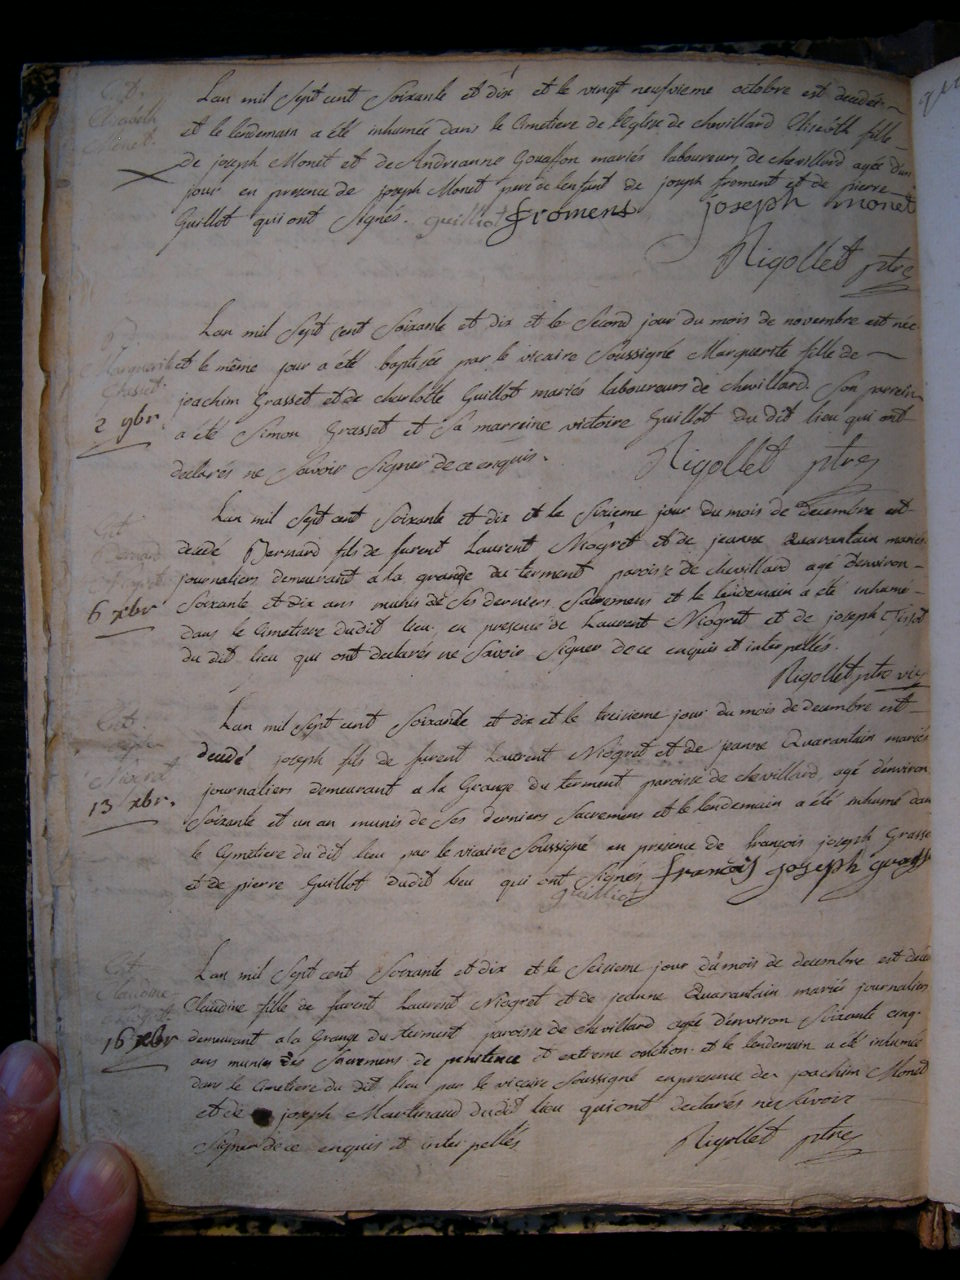 Cit.
Elisabeth
Monet.
Lan mil sept cent soixante et dix et le vingt neufvieme octobre est decedée
et le lendemain a été inhumée dans le Cimetiere de l'Eglise de chevillard Elisabeth fille
de joseph Monet et de Andrianne Gouaffon mariés laboureurs de chevillard agée d'un
jour en presence de joseph Monet pere de lenfant de joseph froment et de pierre
Guillot qui ont signés. guilliot fromens joseph monet
Rigollet ptre
Lan mil sept cent soixante et dix et le second jour du mois de novembre est née
Marguerite et le même jour a été baptisée par le vicaire soussigné Marguerite fille de
Grasset. joachim Grasset et de charlotte Guillot mariés laboureurs de chevillard. Son parein
2 9br. a été Simon Grasset et sa marreine victoire Guillot du dit lieu qui ont
declarés ne savoir signer de ce enquis. Rigollet ptre
Cit.
Bernard
Lan mil sept cent soixante et dix et le sixieme jour du mois de decembre est
decedé Bernard fils de furent Laurent Niogret et de jeanne Quarantain mariés
journaliers demeurant a la grange du terment paroisse de chevillard agé d'environ
6 xbr soixante et dix ans munis de ses derniers sacremens et le lendemain a été inhumé
dans le Cimetiere dudit lieu en presence de Laurent Niogret et de joseph Tissot
du dit lieu qui ont declarés ne savoir signer de ce enquis et interpellés.
Rigollet ptre vic
Cit.
Niogret
Lan mil sept cent soixante et dix et le treisieme jour du mois de decembre est
decedé joseph fils de furent Laurent Niogret et de jeanne Quarantain mariés
journaliers demeurant a la Grange du terment paroisse de chevillard agé d'environ
13 xbr. soixante et un an munis de ses derniers sacremens et le lendemain a été inhumé dans
le Cymetiere du dit lieu par le vicaire soussigné en presence de françois joseph Grasset
et de pierre Guillot dudit lieu qui ont signés françois joseph grasst
guilliot
Cit.
Claudine
Lan mil sept cent soixante et dix et le seizieme jour du mois de decembre est decedée
Claudine fille de furent Laurent Niogret et de jeanne Quarantain mariés journaliers
16 xbr demeurant a la Grange du terment paroisse de chevillard agée d'environ soixante cinq
ans munie des sacremens de penitence et extreme onction et le lendemain a été inhumée
dans le Cimetiere du dit lieu par le vicaire soussigné en presence de joachim Monet
et de joseph Martinaud dudit lieu qui ont declarés ne savoir
signer de ce enquis et interpellés Rigollet ptre